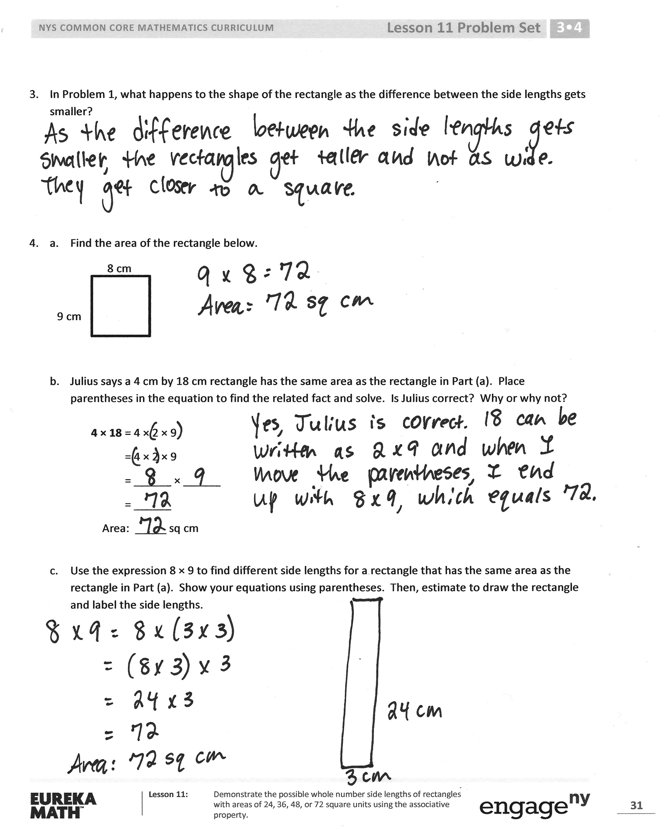 NYS COMMON CORE MATHEMATICS CURRICULUM Lesson 11 Problem Set 3•4
3. In Problem 1, what happens to the shape of the rectangle as the difference between the side lengths gets
smaller?
As the difference between the side lengths gets
smaller, the rectangles get taller and not as wide.
They get closer to a square.
4. a. Find the area of the rectangle below.
8 cm
9 cm
9 x 8 = 72
Area: 72 sq cm
b. Julius says a 4 cm by 18 cm rectangle has the same area as the rectangle in Part (a). Place
parentheses in the equation to find the related fact and solve. Is Julius correct? Why or why not?
4 × 18 = 4 × (2 × 9)
= (4 × 2) × 9
= 8 × 9
= 72
Area: 72 sq cm
Yes, Julius is correct. 18 can be
written as 2 x 9 and when I
move the parentheses, I end
up with 8 x 9, which equals 72.
c. Use the expression 8 × 9 to find different side lengths for a rectangle that has the same area as the
rectangle in Part (a). Show your equations using parentheses. Then, estimate to draw the rectangle
and label the side lengths.
8 x 9 = 8 x (3 x 3)
= (8 x 3) x 3
= 24 x 3
= 72
Area: 72 sq cm
24 cm
3 cm
EUREKA
MATH™
Lesson 11:
Demonstrate the possible whole number side lengths of rectangles
with areas of 24, 36, 48, or 72 square units using the associative
property.
engage ny
31